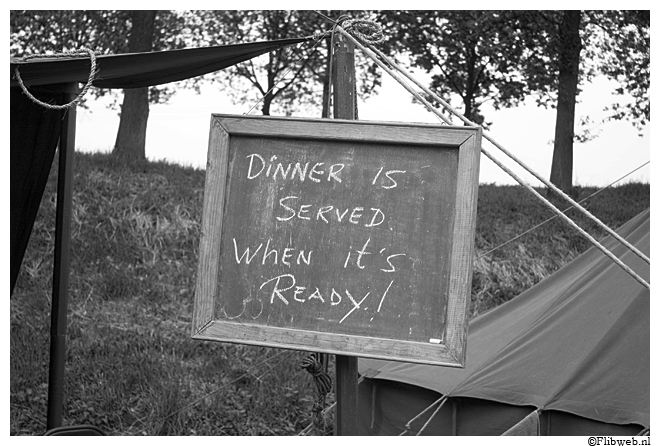 Dinner is
Served.
When it's
Ready!
©Flibweb.nl